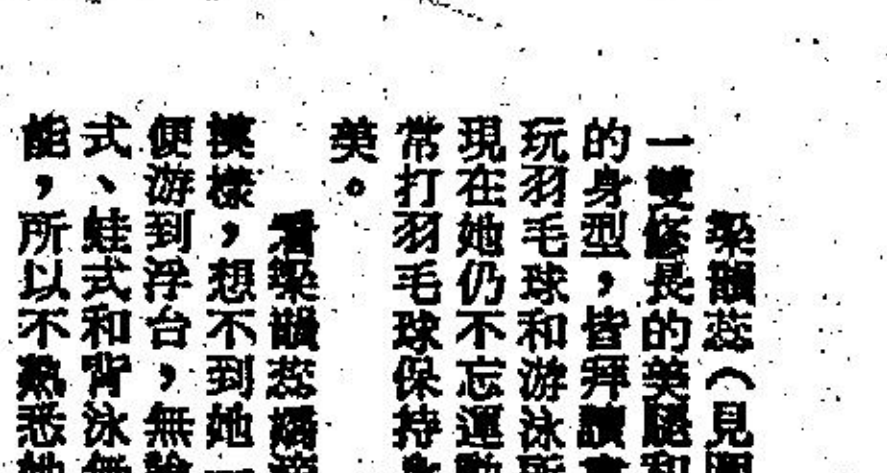 梁韻蕊（見圖
一雙修長的美腿和
的身型，皆拜讀書
玩羽毛球和游泳所
現在她仍不忘運動
常打羽毛球保持身
美。
看梁韻蕊嬌
模樣，想不到她一
便游到浮台，無論
式、蛙式和背泳無
能，所以不熟悉她